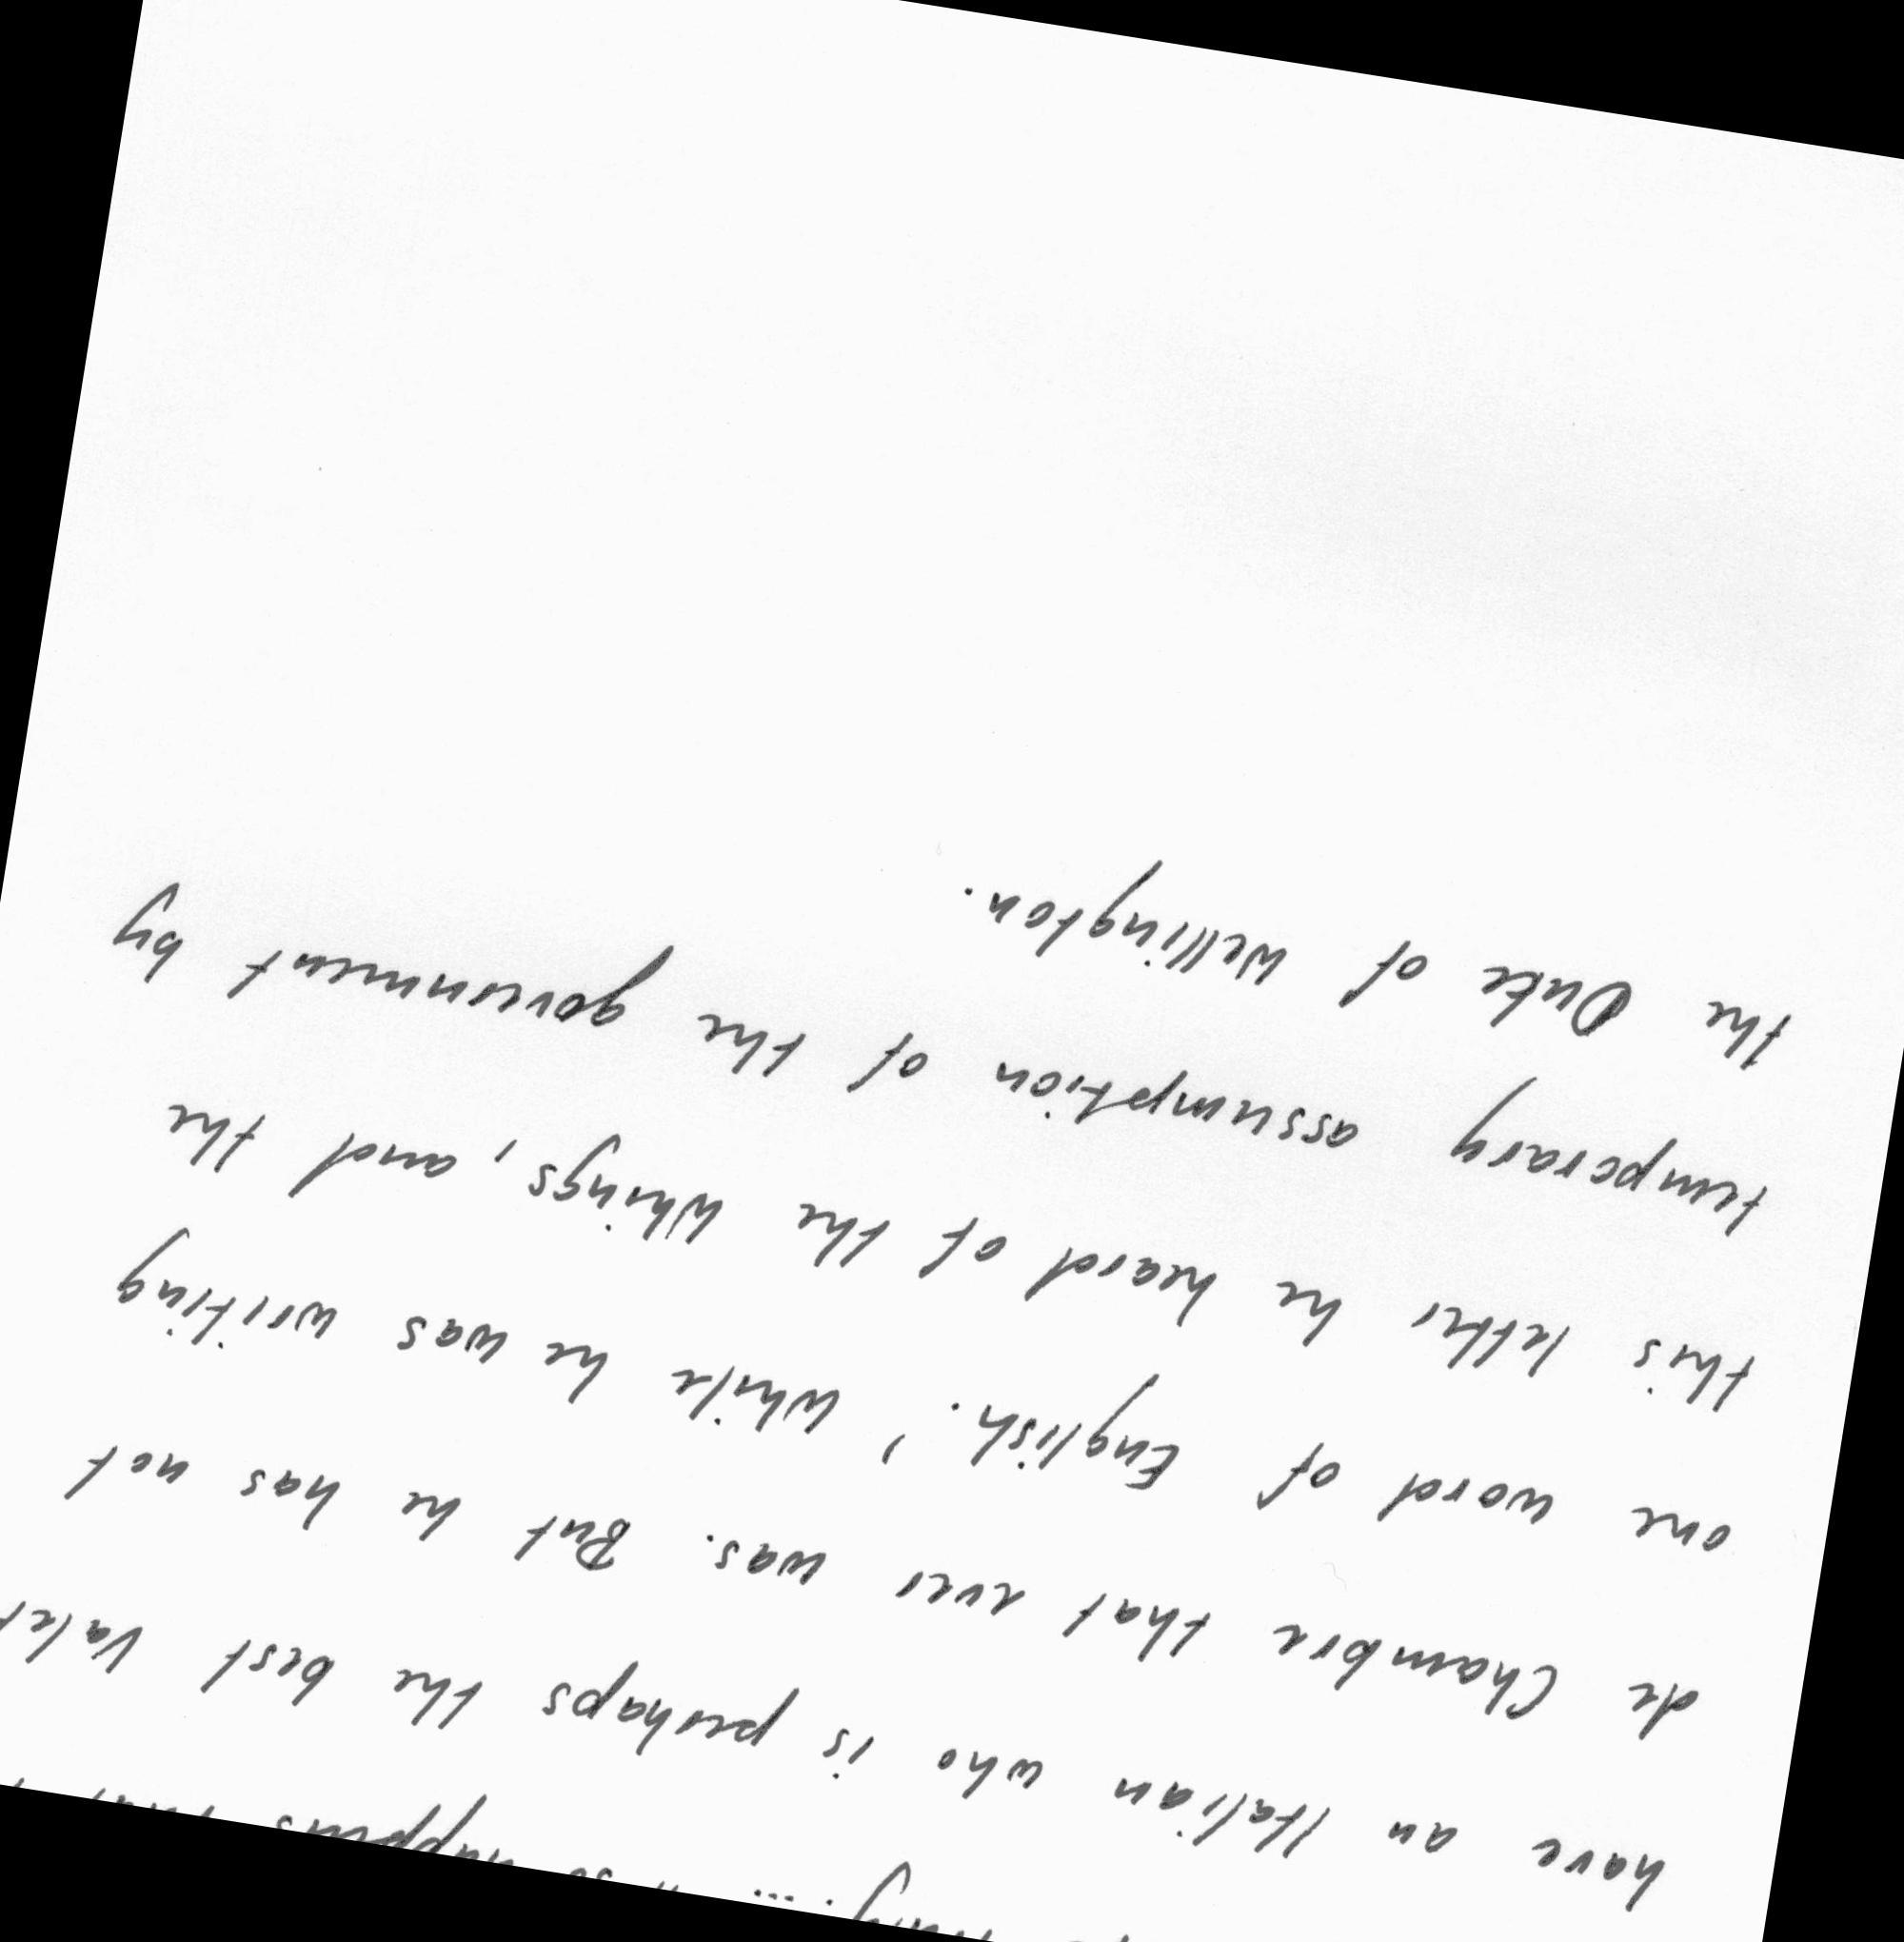 happens
have an Italian who is perhaps the best Valet
de Chambre that ever was. But he has not
one word of English.' While he was writing
this letter he heard of the Whings, and the
temperary assumption of the government by
the Duke of Wellington.